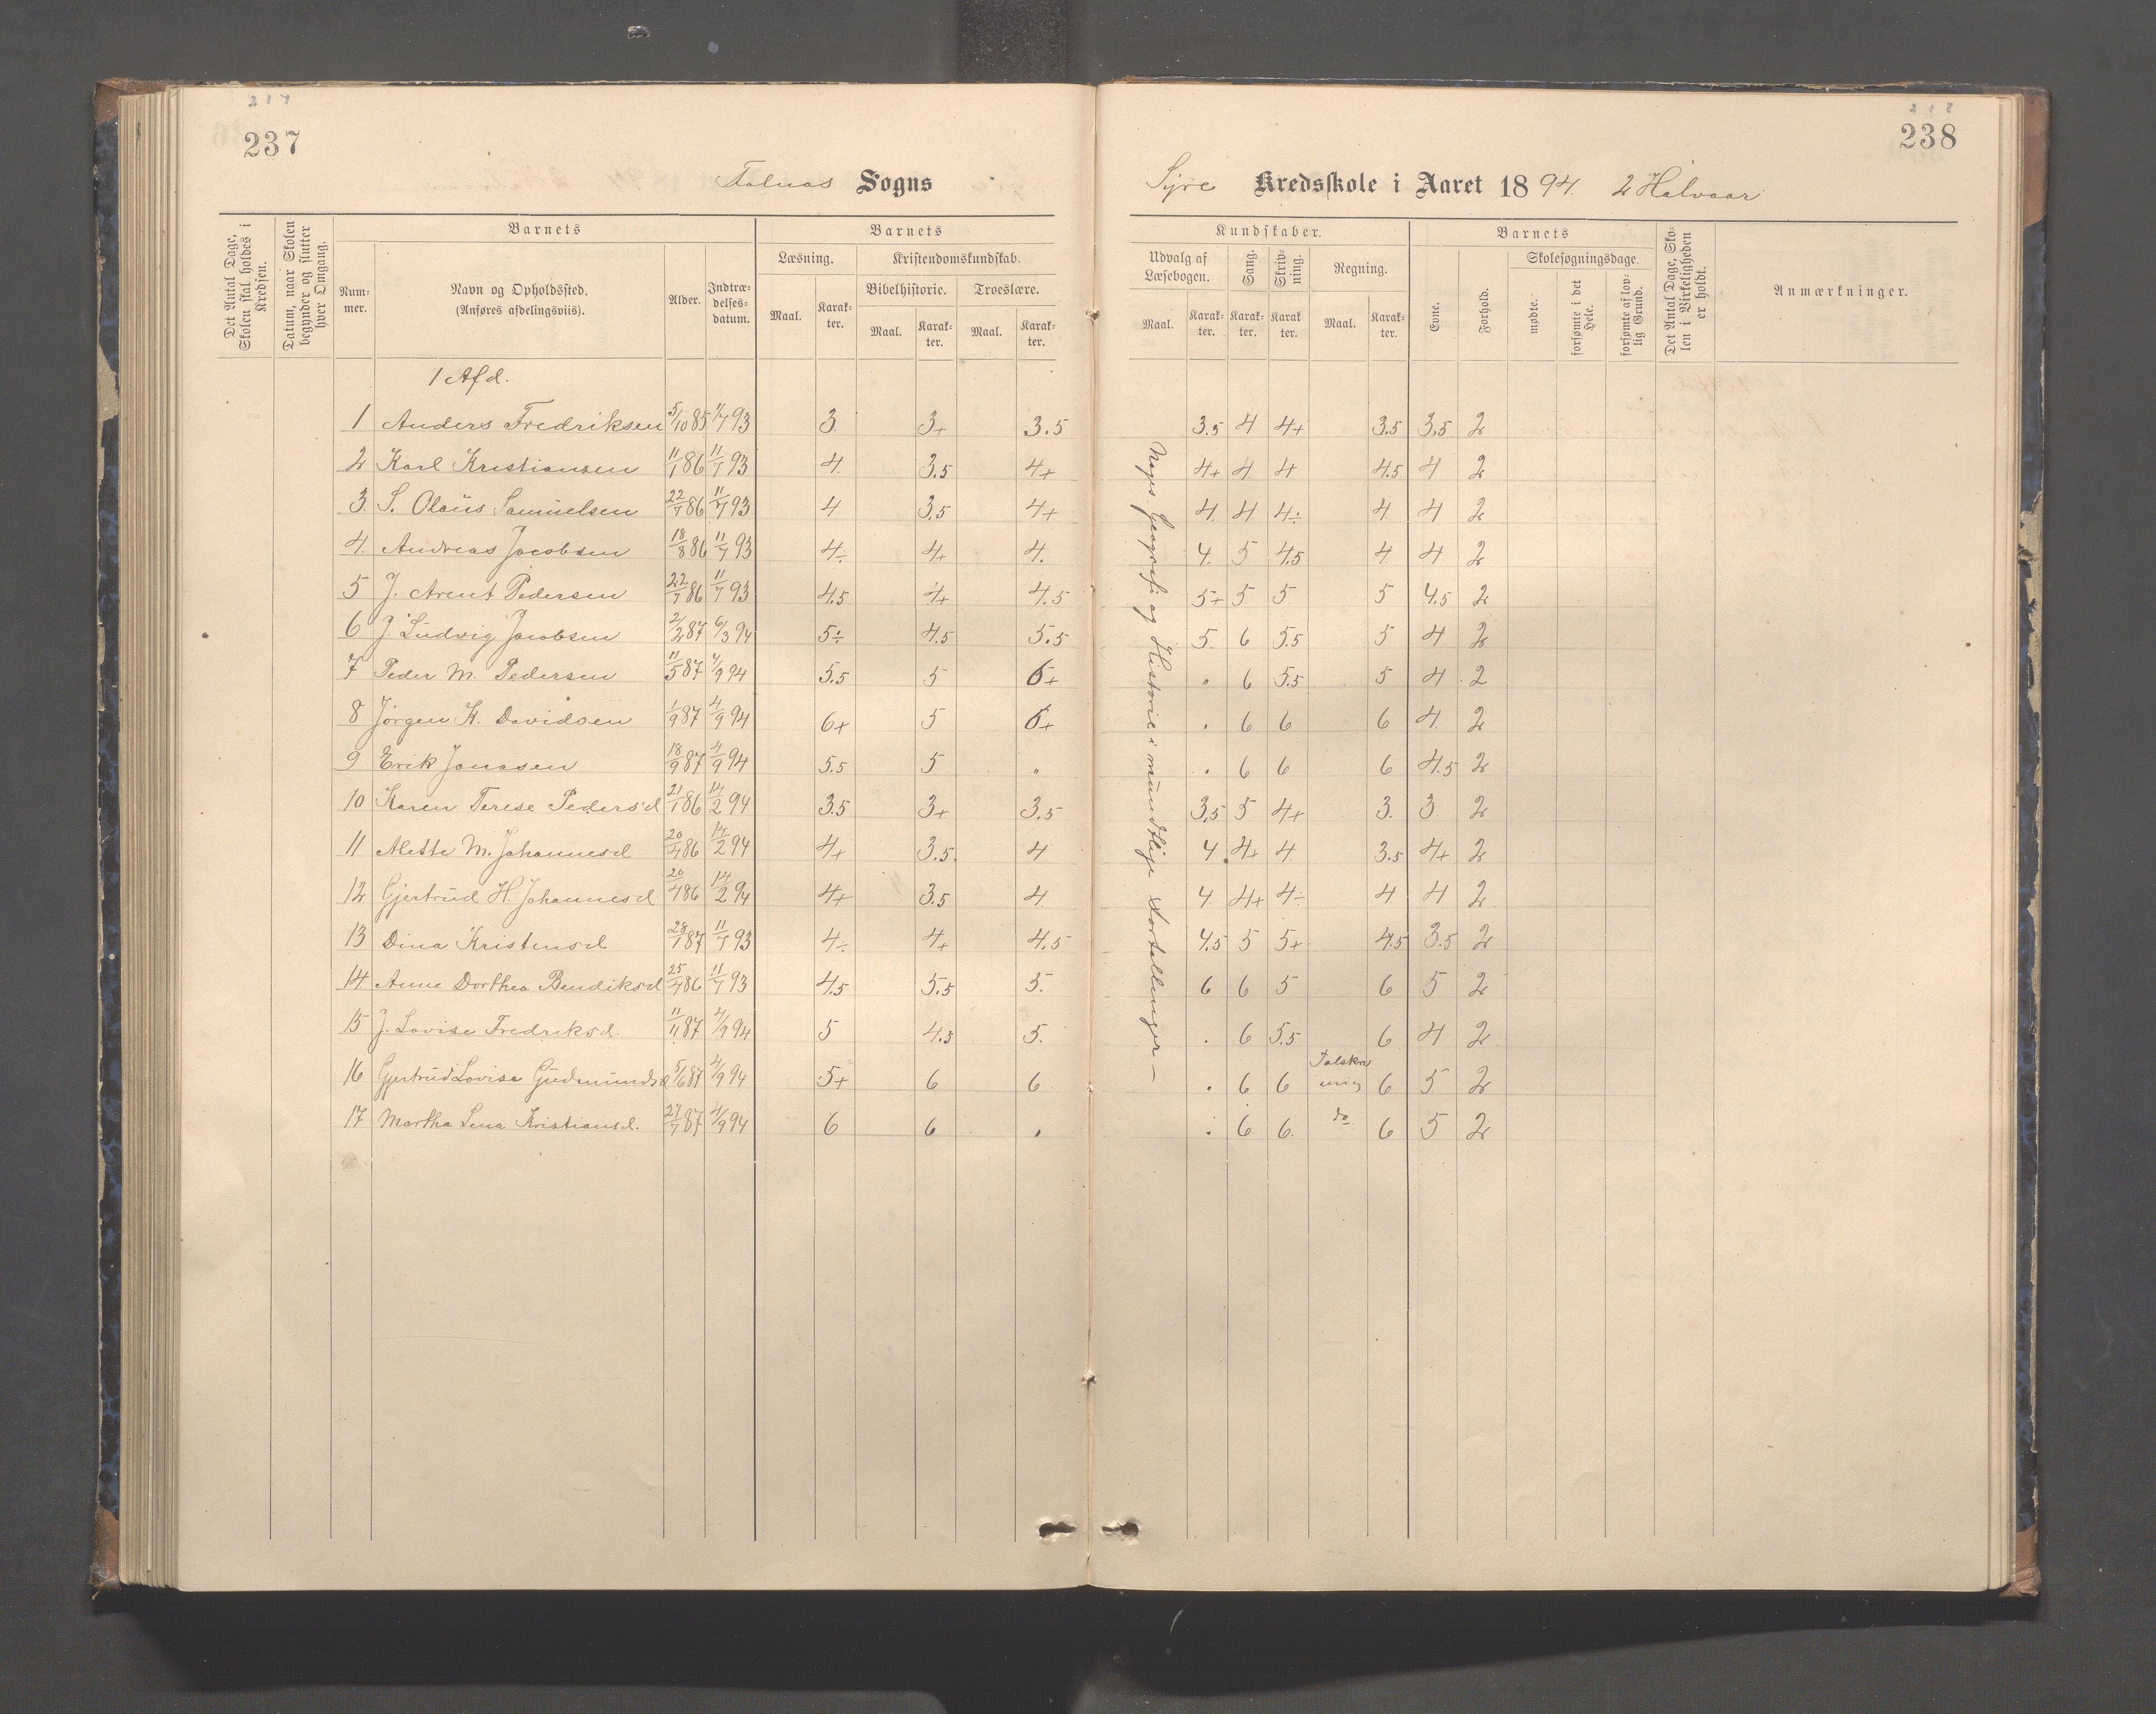 217
237
Falnæs Sogns
Det Antal Dage, Skolen skal holdes i Kredsen.
Datum, naar Skolen begynder og slutter hver Omgang.
Barnets
Nummer.
Navn og Opholdssted.
(Anføres afdelingsviis).
Alder.
Indtrædelsesdatum.
Barnets
Læsning.
Kristendomskundskab.
Bibelhistorie.
Troeslære.
Maal. Karakter. Maal. Karakter. Maal. Karakter.
1 Afd.
1 Anders Fredriksen 5/10 85 11/7 93 3. 3+ 3.5
2 Karl Kristiansen 11/1 86 11/7 93 4. 3.5 4+
3. S. Olaüs Samüelsen 22/7 86 11/7 93 4 3.5 4+
4. Andreas Jacobsen 18/8 86 11/7 93 4÷ 4+ 4.
5 J. Arent Pedersen 22/7 86 11/7 93 4.5 4+ 4.5
6 J. Lüdvig Jacobsen 2/2 87 6/3 94 5÷ 4.5 5.5
7 Peder M. Pedersen 11/5 87 4/9 94 5.5 5 6+
8 Jørgen K. Davidsen 1/9 87 4/9 94 6+ 5 6+
9 Erik Jonasen 18/9 87 4/9 94 5.5 5 "
10 Karen Terese Pedersd 21/1 86 14/2 94 3.5 3+ 3.5
11 Alette M. Johannesd 20/4 86 14/2 94 4+ 3.5. 4
12 Gjertrüd H Johannesd 20/4 86 14/2 94 4+ 3.5 4
13 Dina Kristensd 28/1 87 11/7 93 4÷ 4+ 4.5
14 Anne Dorthea Bendiksd 25/4 86 11/7 93 4.5 5.5 5.
15 J. Lovise Fredriksd. 11/11 87 4/9 94 5 4.5 5.
16 Gjertrüd Lovise Güdmündsd 5/6 87 4/9 94 5+ 6 6
17 Martha Lena Kristiansd. 27/7 87 4/9 94 6 6 .
218
238
Syre Kredsskole i Aaret 1894. 2 Halvaar
Kundskaber.
Udvalg af Læsebogen.
Sang.
Skrivning.
Regning.
Maal. Karakter. Karakter. Karakter. Maal. Karakter.
Barnets
Evne.
Forhold.
Skolesøgningsdage.
mødte.
forsømte i det Hele.
forsømte af lovlig Grund.
Det Antal Dage, Skolen i Virkeligheden er holdt.
Anmærkninger.
Geografi og Historie i mündtlige Fortællinger —
3.5 4 4+ 3.5 3,5 2
4+ 4. 4 4.5 4 2
4. 4 4÷ 4. 4 2
4. 5 4.5 4 4 2
5+ 5 5 5 4.5 2
5. 6 5.5 5 4 2
" 6 5.5 5 4. 2
. 6 6 6 4. 2
. 6 6 6 4.5 2
3,5 5 4+ 3. 3. 2
4 4+ 4 3.5 4+ 2
4 4+ 4÷ 4 4 2
4.5 5 5+ 4.5 3.5 2
6 6 5 6 5 2
. 6 5.5 6 4 2
. 6 6 6 5 2
. 6 6. do 6 5 2